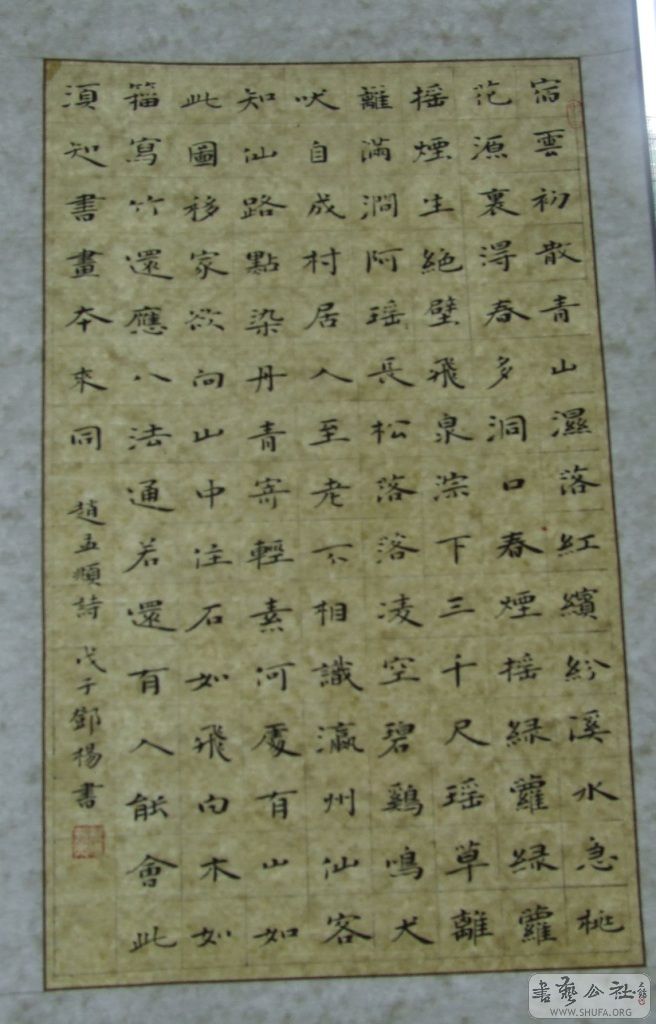 宿雲初散青山濕落紅繽紛溪水急桃
花源裏得春多洞口春煙摇緑蘿緑蘿
摇煙生絶壁飛泉淙下三千尺瑶草離
離滿澗阿瑶長松落落凌空碧鷄鳴犬
吠自成村居人至老不相識瀛州仙客
知仙路點染丹青寄輕素何處有山如
此圖移家欲向山中住石如飛白木如
籀寫竹還應八法通若還有人能會此
須知書畫本來同 趙孟頫詩 戊子鄧楊書
書藝公社
WWW.SHUFA.ORG